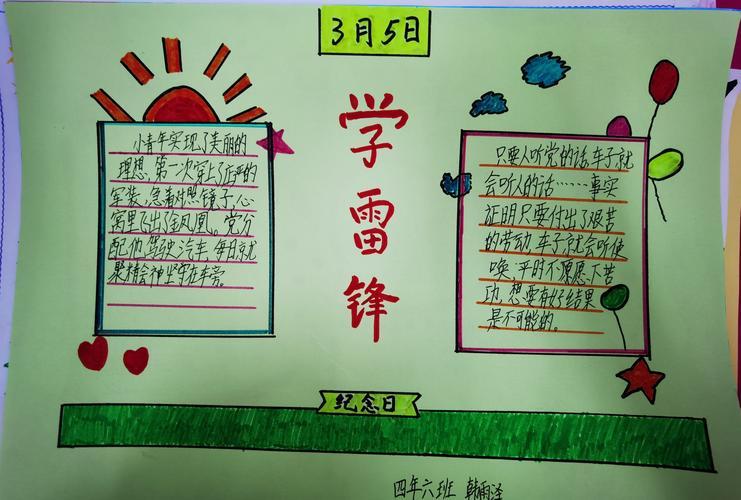 3月5日
学雷锋
小青年实现了美丽的
理想，第一次穿上了庄严的
军装，急着对照镜子，心
窝里飞出了金凤凰。党分
配他驾驶汽车，每日就
聚精会神坐守在车旁
只要人听党的话，车子就
会听人的话……事实
证明只要付出了艰苦
的劳动，车子就会听使
唤，平时不愿意下苦
功，想要有好结果
是不可能的。
纪念日
四年六班 韩雨泽